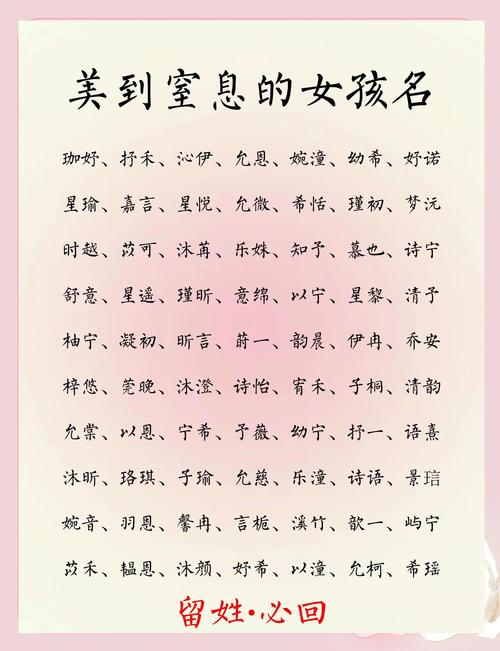 美到窒息的女孩名
珈妤、抒禾、沁伊、允恩、婉潼、幼希、妤诺
星瑜、嘉言、星悦、允微、希恬、瑾初、梦沅
时越、苡可、沐苒、乐姝、知予、慕也、诗宁
舒意、星遥、瑾昕、意绵、以宁、星黎、清予
柚宁、凝初、昕言、蔚一、韵晨、伊冉、乔安
梓悠、莞晚、沐澄、诗怡、宥禾、子桐、清韵
允棠、以恩、宁希、予薇、幼宁、抒一、语熹
沐昕、珞琪、子瑜、允慈、乐潼、诗语、景琂
婉音、羽恩、馨冉、言栀、溪竹、歆一、屿宁
苡禾、韫恩、沐颜、妤希、以潼、允柯、希瑶
留姓·必回